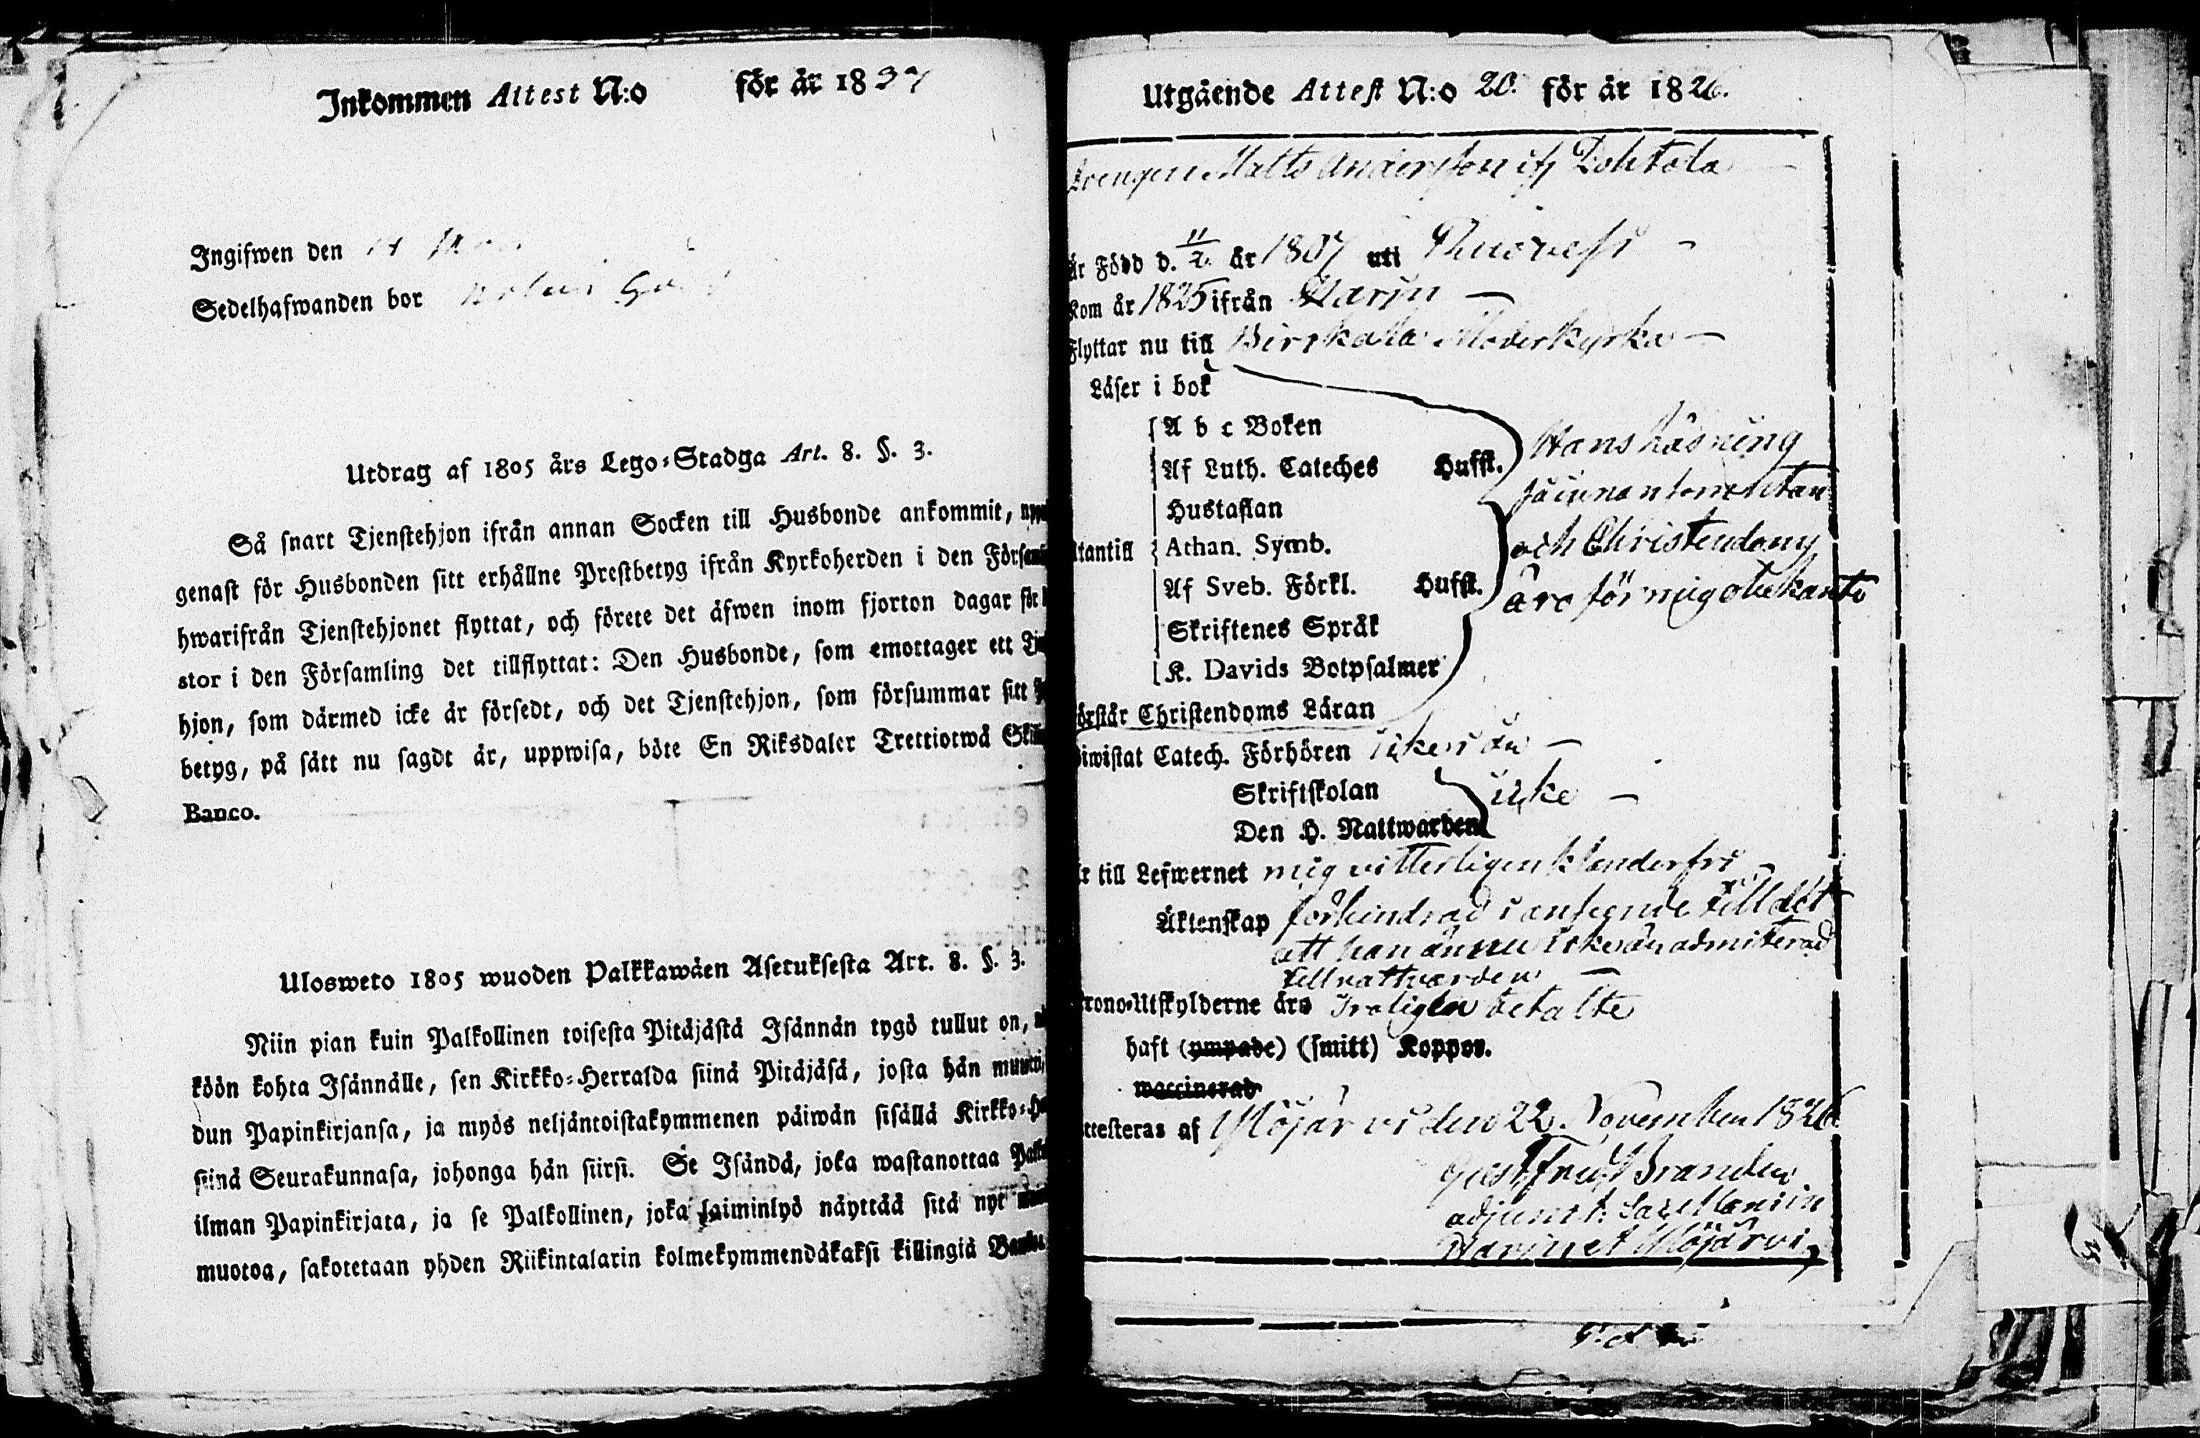 Inkommen Attest N:o för år 1837
Ingifwen den 14
Sedelhafwanden bor
Utdrag af 1805 års Lego-Stadga Art. 8. §. 3.
Så snart Tjenstehjon ifrån annan Socken till Husbonde ankommit,
genast för Husbonden sitt erhållne Prestbetyg ifrån Kyrkoherden i den
hwarifrån Tjenstehjonet flyttat, och förete det äfwen inom fjorton dagar för
stor i den Församling det tillflyttat: Den Husbonde, som emottager ett
hjon, som därmed icke är försedt, och det Tjenstehjon, som försummar sitt
betyg, på sätt nu sagdt är, uppwisa, böte En Riksdaler Trettiotwå
Banco.
Ulosweto 1805 wuoden Palkkawäen Asetuksesta Art. 8. §. 3.
Niin pian kuin Palkollinen toisesta Pitäjästä Isännän tygö tullut on,
köön kohta Isännälle, sen Kirkko-Herralda siinä Pitäjäsä, josta hän
dun Papinkirjansa, ja myös neljäntoistakymmenen päiwän sisällä
siinä Seurakunnasa, johonga hän siirsi. Se Isändä, joka wastanottaa
ilman Papinkirjata, ja se Palkollinen, joka laiminlyö näyttää sitä nyt
muotoa, sakotetaan yhden Riikintalarin kolmekymmendäkaksi killingiä
Utgående Attest N:o 20. för år 1826.
Drengen Matts Andersson ifr Lohtola
är Född d. 11/2 år 1807 uti Ruovesi
Kom år 1825 ifrån Harju
Flyttar nu till Birkkala Moderkyrka
Läser i bok
A b c Boken
Af Luth. Cateches Hufst.
Hans Läsning
Hustaflan
så innan som utan
Athan. Symb.
och Christendom
Af Sveb. Förkl. Hufst.
äro för mig obekante
Skriftenes Språk
K. Davids Botpsalmer
Förstår Christendoms Läran
Biwistat Catech. Förhören icke
Skriftskolan icke
Den H. Nattwarden
Är till Lefwernet mig vitterligen klanderfri
Äktenskap förhindrad i anseende till det
att han ännu icke är admitterad
till nattvarden
Krono-Utskylderne äro betalte
haft (ympade) (smitt) Koppor.
waccinerad
Attesteras af Ylöjärvi den 22 November 1826
adjunct: Sacellan in
Harju et Ylöjärvi